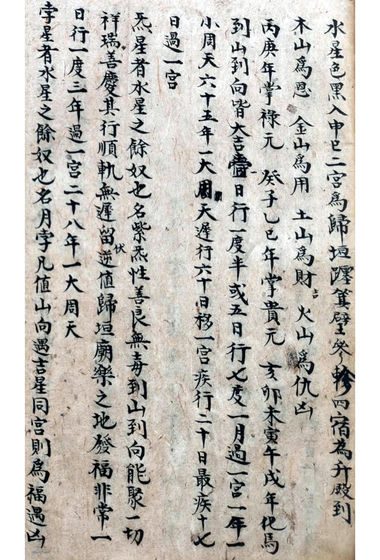 水星色黑入申巳二宮為歸垣躔箕壁參軫四宿為升殿到
木山為恩　金山為用　土山為財吉　火山為仇凶
丙庚年掌祿元　癸子乙巳年掌貴元　亥卯未寅午戌年化馬
到山到向皆大吉當日行一度半或五日行七度一月過一宮一年一
小周天六十五年一大周天遲行六十日移一宮疾行二十日最疾十七
日過一宮
炁星者木星之餘奴也名紫炁性善良無毒到山到向能聚一切
祥瑞善慶其行順軌無遲留伏逆值歸垣廟樂之地發福非常一
日行一度三年過一宮二十八年一大周天
孛星者水星之餘奴也名月孛凡值山向遇吉星同宮則為福遇凶